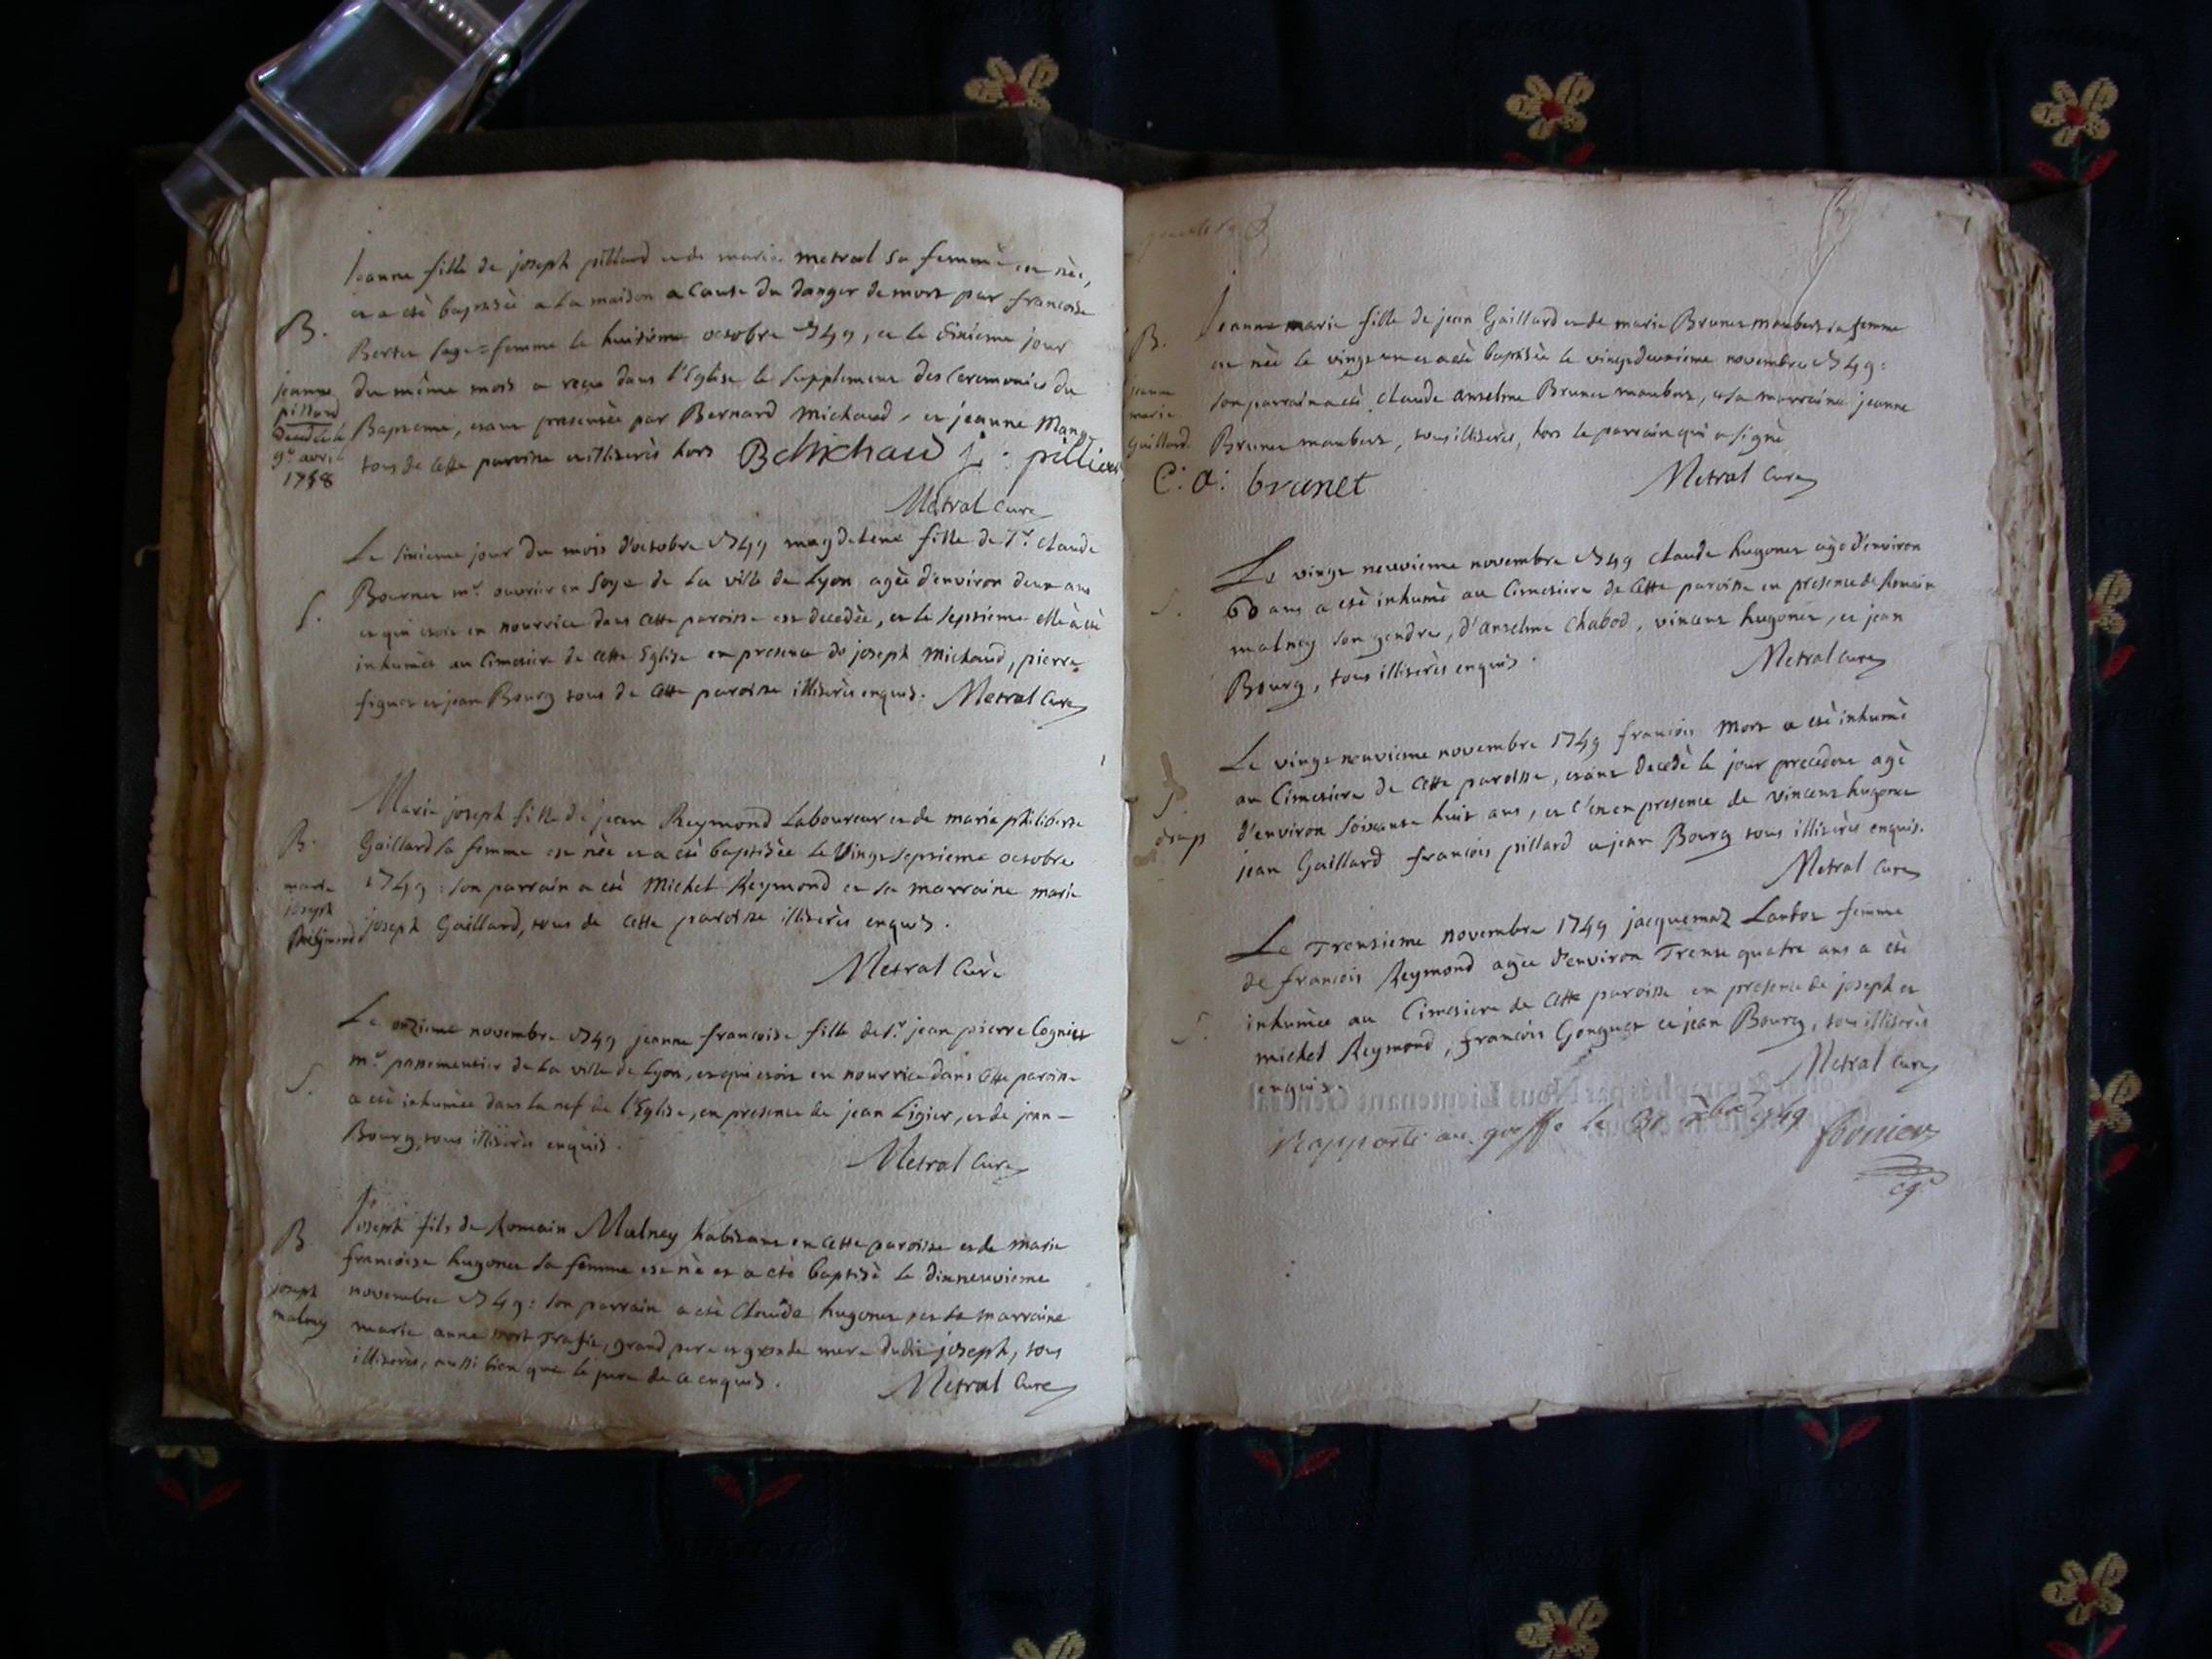 Jeanne fille de joseph pillard et de marie metral sa femme, est née,
et a été baptisée a la maison a cause du danger de mort par francoise
B.
Bertet sage=femme le huitième octobre 1749, et le dixieme jour
jeanne pillard
du même mois a reçu dans l'Eglise le supplement des Ceremonies du
decedée le
Bapteme, etant presentée par Bernard Michaud, et jeanne
9e avril
1758
tous de cette paroisse illiterés hors BMichaud j: pilliard
Metral Curé
Le sixieme jour du mois d'octobre 1749 magdelene fille de Sr. claude
Bournet mr. ouvrier en soye de la ville de Lyon agée d'environ deux ans
S.
et qui etoit en nourrice dans cette paroisse est decedée, et le septième elle a été
inhumée au Cimetiere de cette Eglise en presence de joseph Michaud, pierre
figuet et jean Bourg tous de cette paroisse illiterés enquis. Metral Curé
Marie joseph fille de jean Reymond Laboureur et de marie philiberte
B.
Gaillard sa femme est née et a été baptisée le Vingt septieme octobre
marie
1749: son parrain a été Michel Reymond et sa marraine marie
joseph
Reymond
joseph Gaillard, tous de cette paroisse illiterés enquis.
Metral Curé
Le onzieme novembre 1749 jeanne francoise fille de Sr. jean pierre Cogniet
mr. passementier de la ville de Lyon, et qui etoit en nourrice dans cette paroisse
S.
a été inhumée dans la nef de l'Eglise, en presence de jean Ligier, et de jean
Bourg, tous illiterés enquis.
Metral Curé
B
Joseph fils de Romain Malney habitant en cette paroisse et de marie
francoise hugonet sa femme est né et a été baptisé le dixneuvieme
joseph
malney
novembre 1749: son parrain a été Claude hugonet et sa marraine
marie anne mort Trafit, grand pere et grande mere dudit joseph, tous
illiterés, aussi bien que le pere de ce enquis.
Metral Curé
B.
Jeanne marie fille de jean Gaillard et de marie Brunet manbert sa femme
est née le vingt un et a été baptisée le vingtdeuxieme novembre 1749:
jeanne
marie
Gaillard
son parrain a été claude anselme Brunet manbert, et sa marraine jeanne
Brunet manbert, tous illiterés, hors le parrain qui a signé
C: a: brunet
Metral Curé
Le vingt neuvieme novembre 1749 claude hugonet agé d'environ
S.
60 ans a été inhumé au Cimetiere de cette paroisse en presence de Romain
malney son gendre, d'anselme Chabod, vincent hugonet, et jean
Bourg, tous illiterés enquis.
Metral Curé
Le vingt neuvieme novembre 1749 francois Mort a été inhumé
S.
au Cimetiere de cette paroisse, etant decedé le jour precedent agé
drap
d'environ soixante huit ans, et c'en en presence de vincent hugonet
jean Gaillard francois pillard et jean Bourg tous illiterés enquis.
Metral Curé
Le Trentieme novembre 1749 jacquemaz Lantoz femme
de francois Reymond agée d'environ Trente quatre ans a été
S.
inhumée au Cimetiere de cette paroisse en presence de joseph et
michel Reymond, francois Gonguet et jean Bourg, tous illiterés
enquis.
Metral Curé
Rapporté au greffe le 31 Xbre 1749